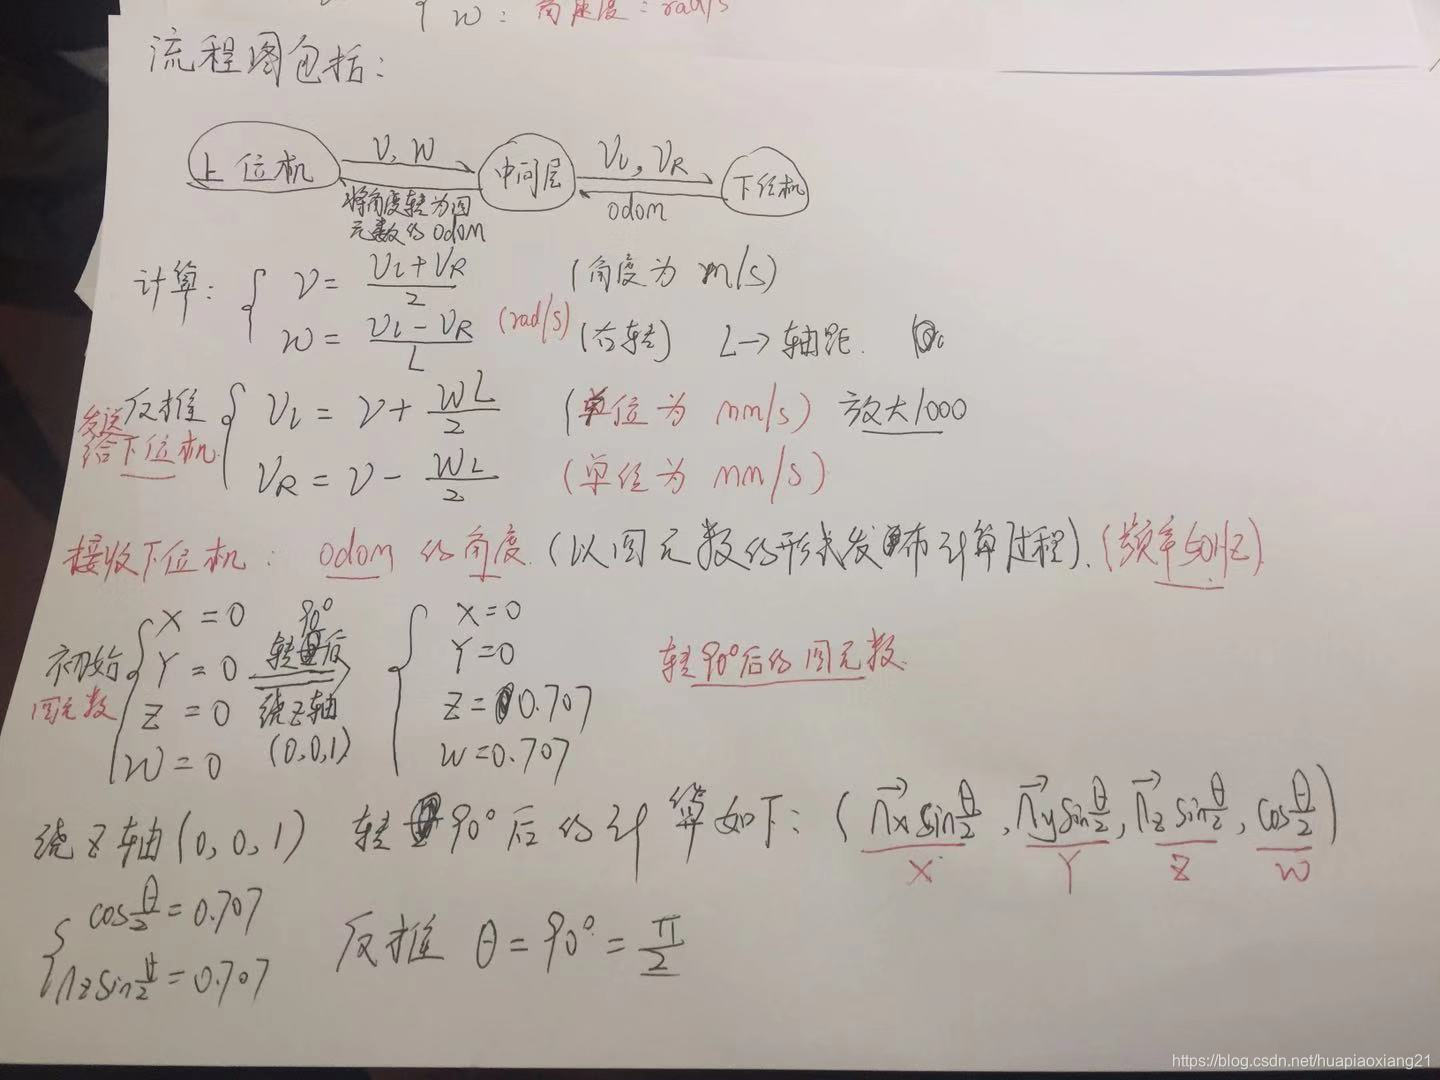 W：角速度：rad/s
流程图包括：
上位机
V, W
将角度转为四
元数的odom
中间层
VL, VR
odom
下位机
计算： { V = (VL+VR)/2 (角度为 m/s)
W = (VL-VR)/L (rad/s) (右转) L→轴距.
发送给下位机 反推 { VL = V + WL/2 (单位为 mm/s) 放大1000
VR = V - WL/2 (单位为 mm/s)
接收下位机： odom 的角度.(以四元数的形式发布计算过程).(频率50HZ).
初始四元数 { X=0 Y=0 Z=0 W=0
90°
转后
绕Z轴
(0,0,1)
{ X=0 Y=0 Z=0.707 W=0.707
转90°后的四元数.
绕Z轴(0,0,1) 转90°后的计算如下：(n⃗x sin θ/2, n⃗y sin θ/2, n⃗z sin θ/2, cos θ/2)
X Y Z W
{ cos θ/2 = 0.707
nz sin θ/2 = 0.707
反推 θ = 90° = π/2
https://blog.csdn.net/huapiaoxiang21